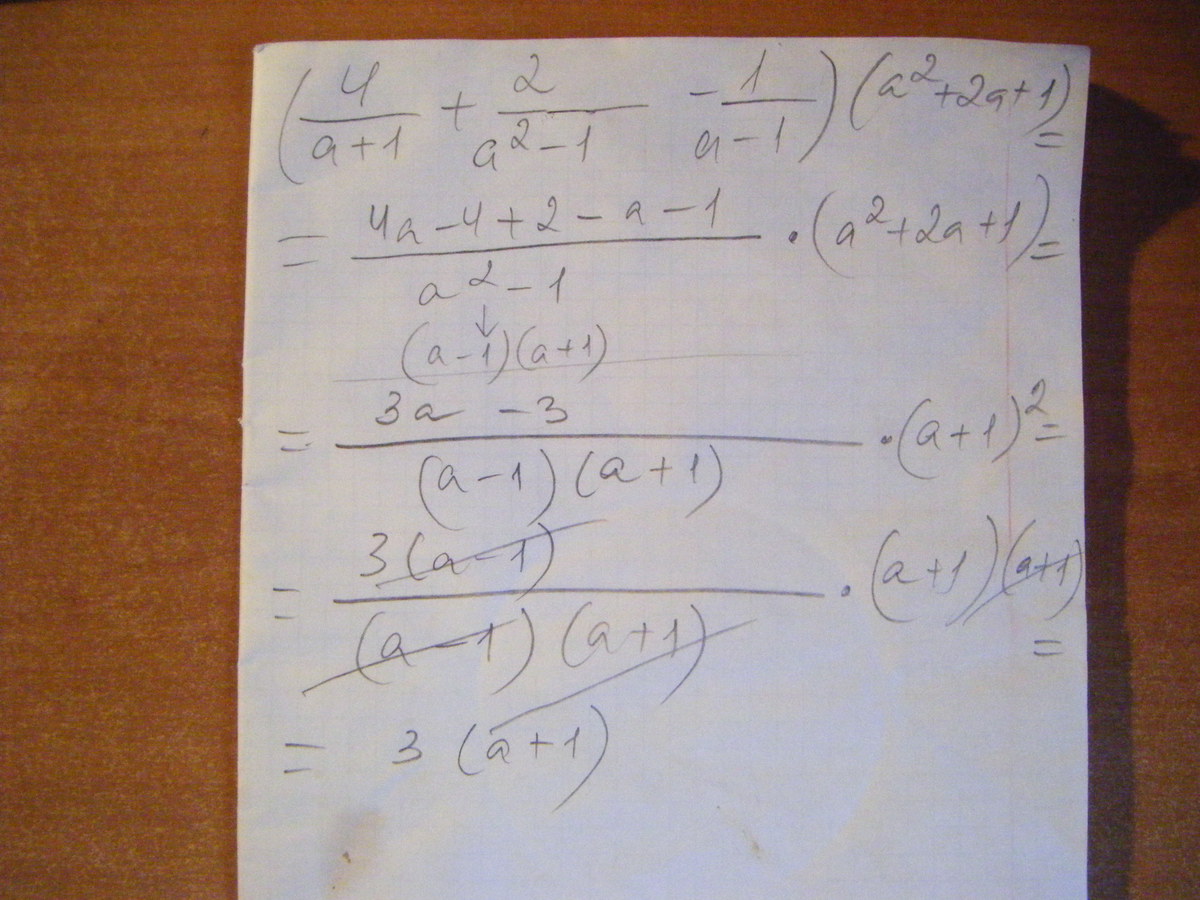 (4/(a+1) + 2/(a²-1) - 1/(a-1)) (a²+2a+1) =
= (4a-4+2-a-1)/(a²-1) · (a²+2a+1) =
↓
(a-1)(a+1)
= (3a -3)/((a-1)(a+1)) · (a+1)² =
= 3(a-1)/((a-1)(a+1)) · (a+1)(a+1) =
= 3(a+1)